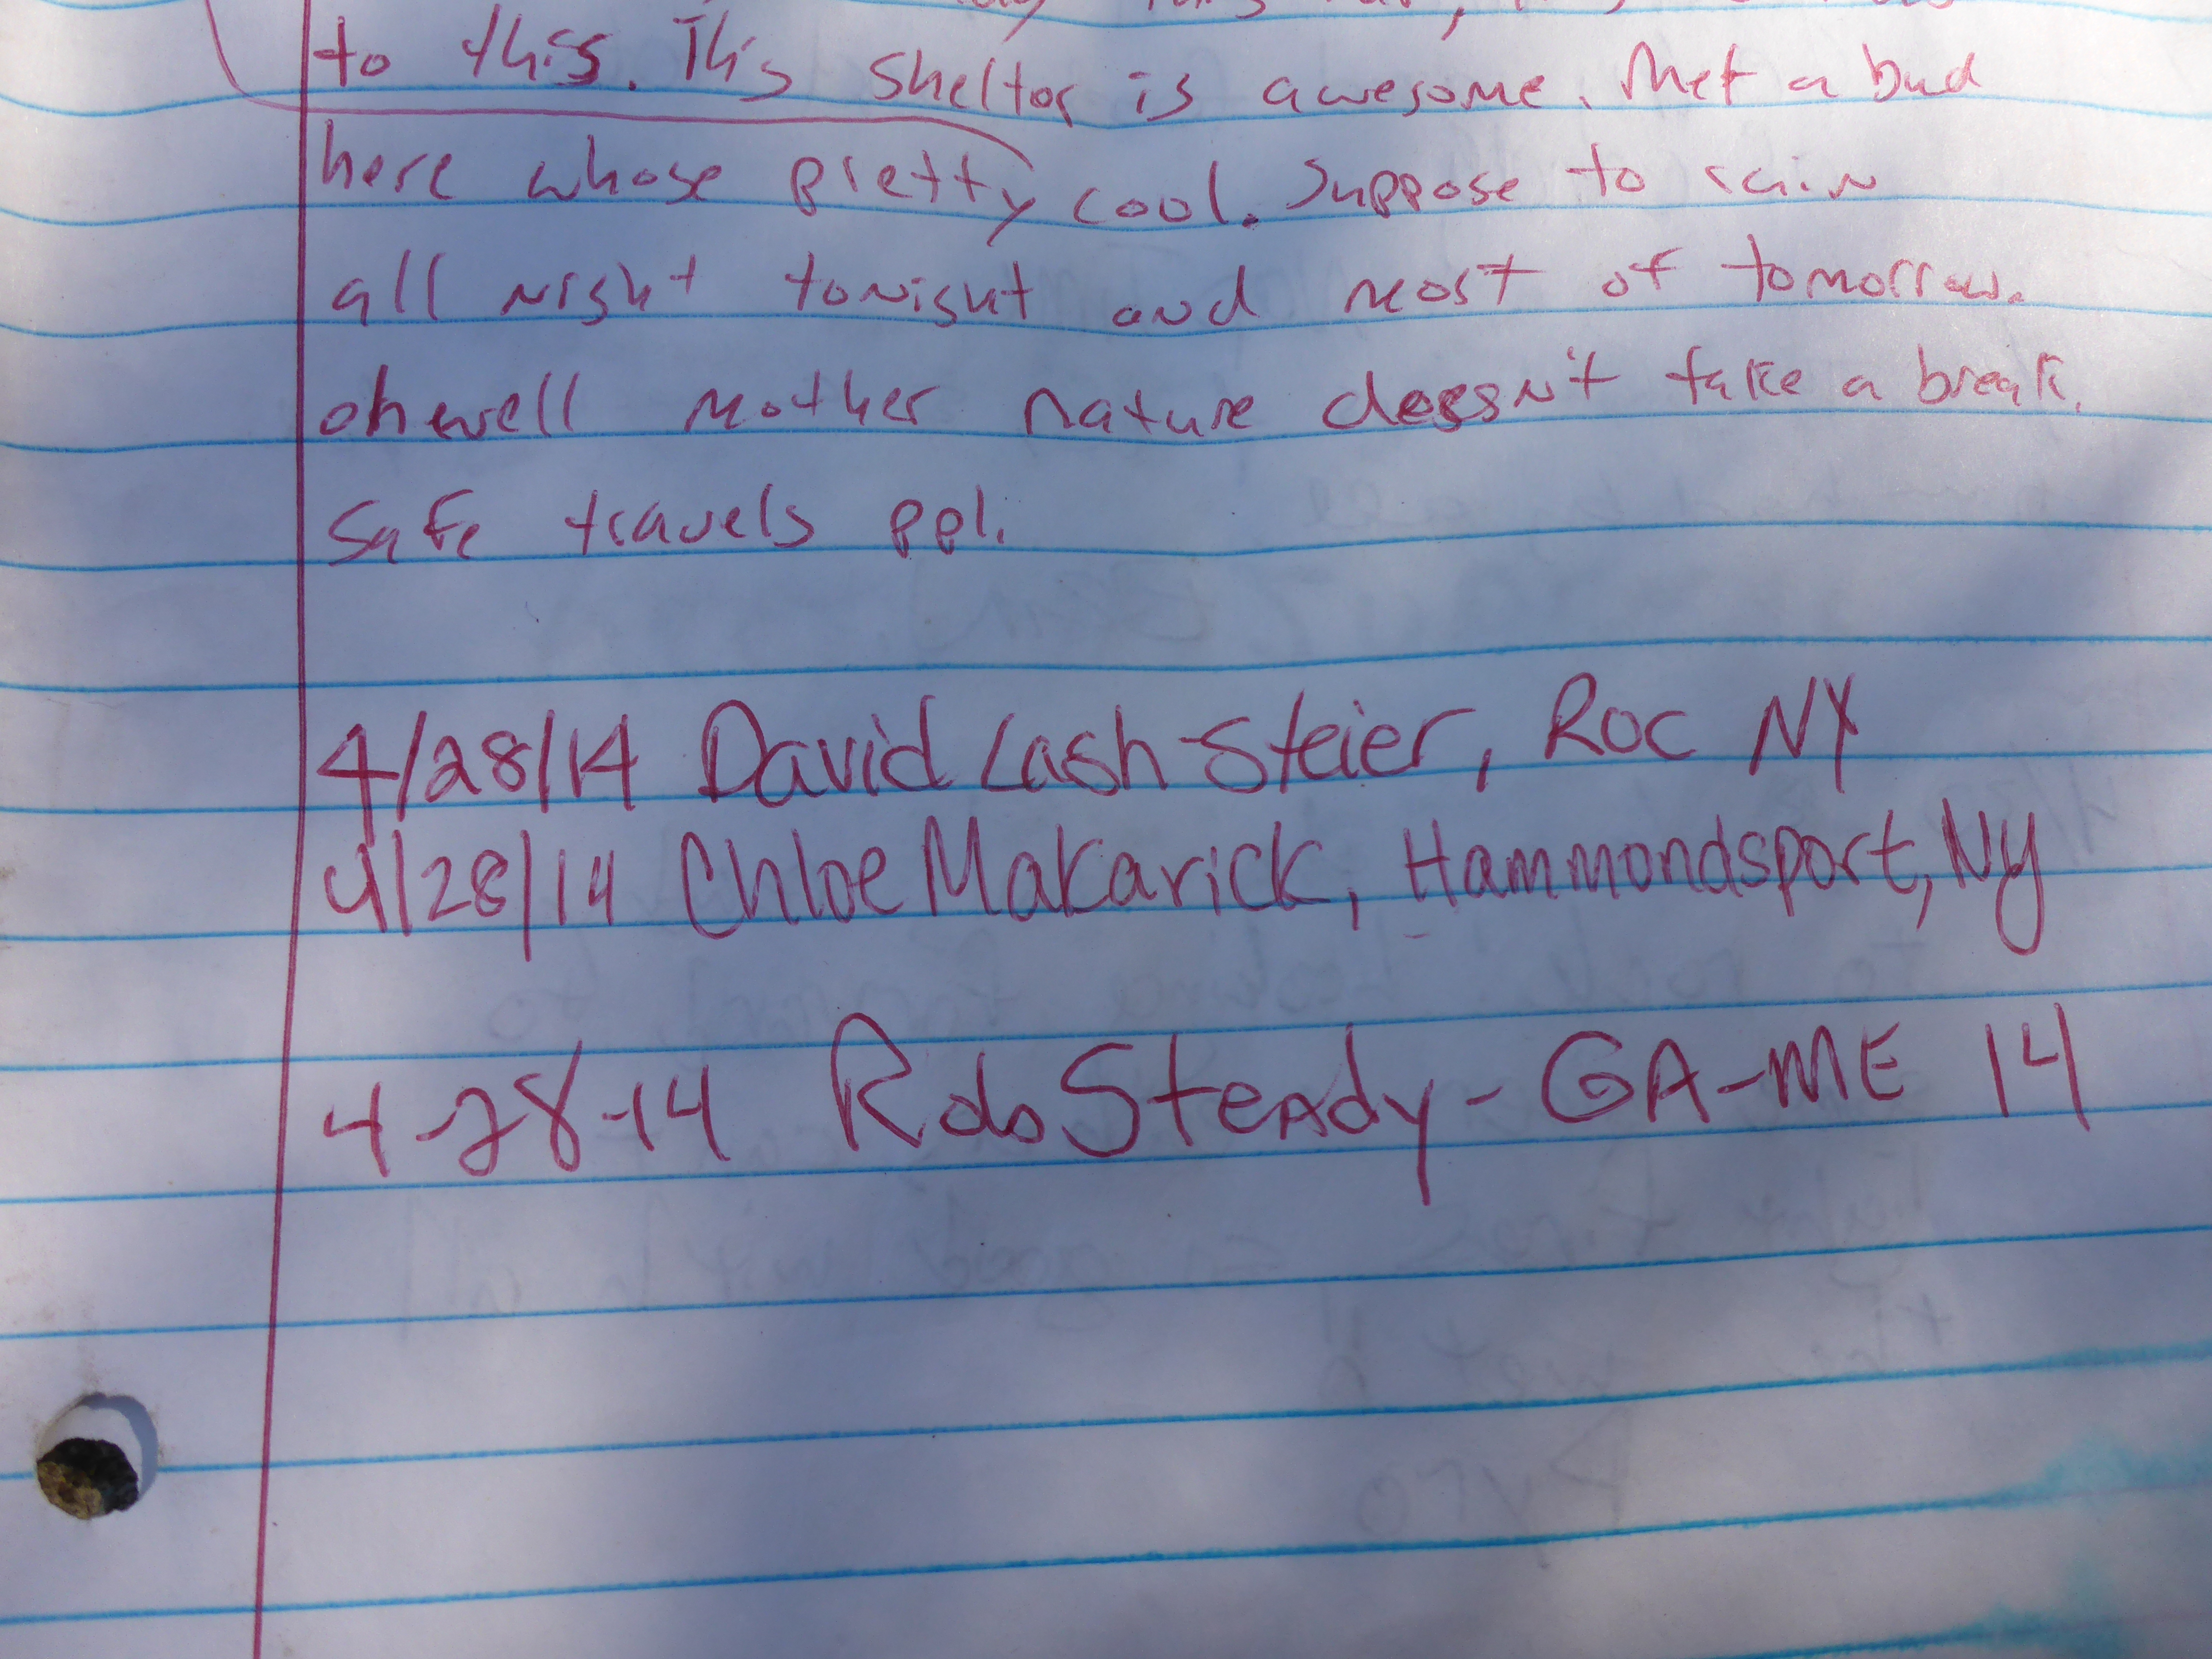 to this. This sheltor is awesome. Met a bud
here whose pretty cool. Suppose to rain
all night tonight and most of tomorrow.
oh well mother nature doesn't take a break.
Safe travels ppl.
4/28/14 David Lash-Steier, Roc NY
4/28/14 Chloe Makarick, Hammondsport, Ny
4-28-14 Rdo Steady - GA-ME 14